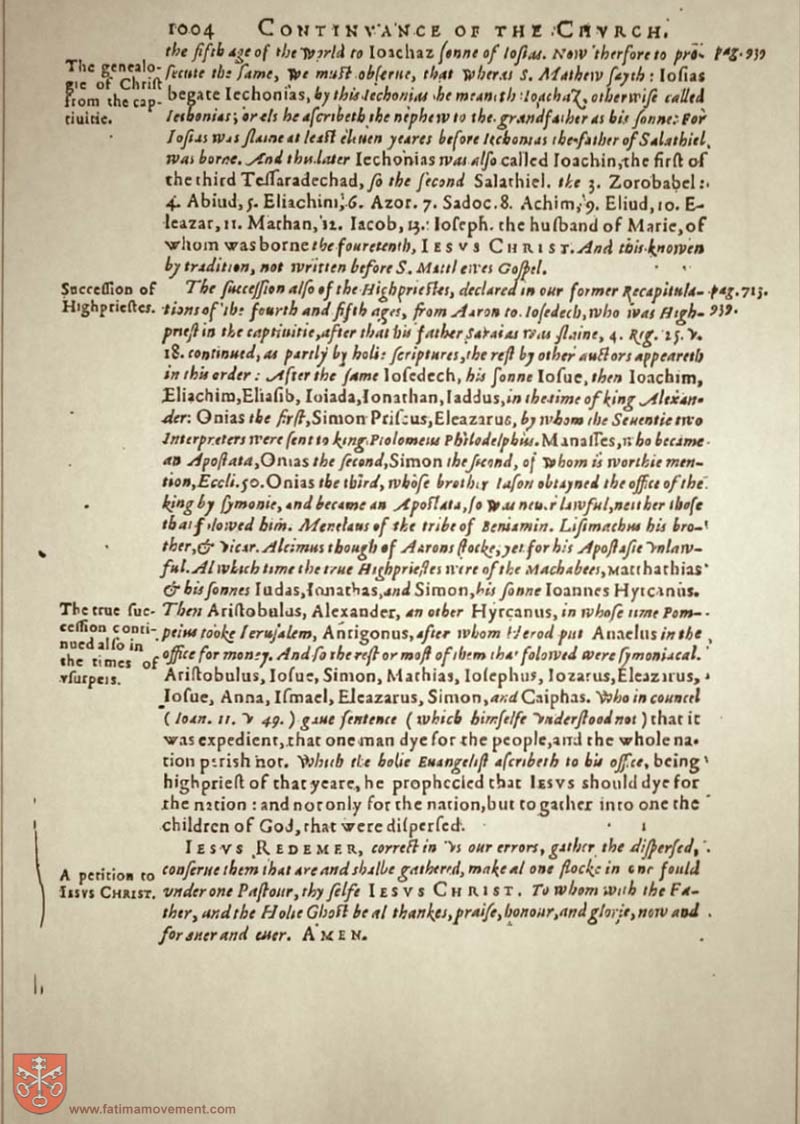 1004 CONTINVANCE OF THE CHVRCH.
the fifth age of the world to Ioachaz sonne of Iosias. Now therfore to pro- pag. 939
The genealogie of Christ from the captiuitie.
secute the same, we must obserue, that wheras S. Mathew sayth: Iosias
begate Iechonias, by this Iechonias he meaneth Ioachaz, otherwise called
Iechonias; or els he ascribeth the nephew to the grandfather as his sonne: For
Iosias was slaine at least eleuen yeares before Iechonias the father of Salathiel,
was borne. And this later Iechonias was also called Ioachin, the first of
the third Tessaradechad, so the second Salathiel. the 3. Zorobabel:
4. Abiud, 5. Eliachim, 6. Azor. 7. Sadoc. 8. Achim, 9. Eliud, 10. E-
leazar, 11. Mathan, 12. Iacob, 13. Ioseph. the husband of Marie, of
whom was borne the fouretenth, IESVS CHRIST. And this knowen
by tradition, not written before S. Matthewes Gospel.
Succession of Highpriestes.
The succession also of the Highpriestes, declared in our former Recapitula- pag. 713.
tions of the fourth and fifth ages, from Aaron to Iosedech, who was High- 939.
priest in the captiuitie, after that his father Saraias was slaine, 4. Reg. 25. v.
18. continued, as partly by holie scriptures, the rest by other auctors appeareth
in this order: After the same Iosedech, his sonne Iosue, then Ioachim,
Eliachim, Eliasib, Ioiada, Ionathan, Iaddus, in the time of king Alexan-
der: Onias the first, Simon Priscus, Eleazarus, by whom the Seuentie two
Interpreters were sent to king Ptolomeus Philodelphus. Manasses, who became
an Apostata, Onias the second, Simon the second, of whom is worthie men-
tion, Eccli. 50. Onias the third, whose brother Iason obtayned the office of the
king by symonie, and became an Apostata, so was neuer lawful, neither those
that folowed him. Menelaus of the tribe of Beniamin. Lisimachus his bro-
ther, & vicar. Alcimus though of Aarons stocke, yet for his Apostasie vnlaw-
ful. Al which time the true Highpriestes were of the Machabees, Matthathias
& his sonnes Iudas, Ionathas, and Simon, his sonne Ioannes Hyrcanus.
The true succession continued also in the times of vsurpers.
Then Aristobulus, Alexander, an other Hyrcanus, in whose time Pom-
peius tooke Ierusalem, Antigonus, after whom Herod put Anaelus in the
office for money. And so the rest or most of them that folowed were symoniacal.
Aristobulus, Iosue, Simon, Mathias, Iosephus, Iozarus, Eleazirus,
Iosue, Anna, Ismael, Eleazarus, Simon, and Caiphas. Who in councel
(Ioan. 11. v 49.) gaue sentence (which himselfe vnderstood not) that it
was expedient, that one man dye for the people, and the whole na-
tion perish not. Which the holie Euangelist ascribeth to his office, being
highpriest of that yeare, he prophecied that IESVS should dye for
the nation: and not only for the nation, but to gather into one the
children of God, that were dispersed.
IESVS REDEMER, correct in vs our errors, gather the dispersed,
A petition to IESVS CHRIST.
conserue them that are and shalbe gathered, make al one flocke in one fould
vnder one Pastour, thy selfe IESVS CHRIST. To whom with the Fa-
ther, and the Holie Ghost be al thankes, praise, honour, and glorie, now and
for euer and euer. AMEN.
www.fatimamovement.com